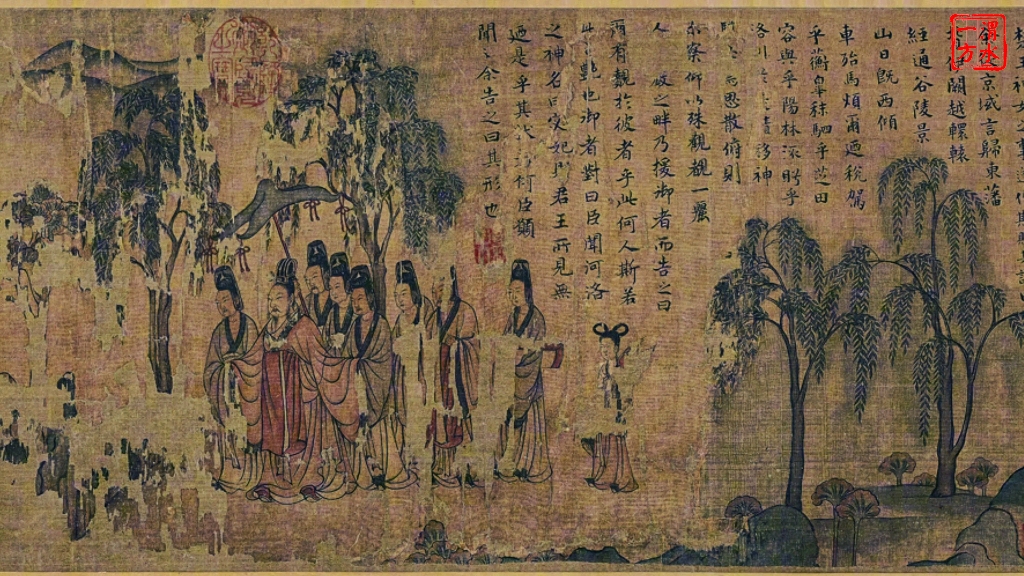 余從京域言歸東藩
伊闕越轘轅
經通谷陵景
山日既西傾
車殆馬煩爾迺稅駕
乎蘅皋秣駟乎芝田
容與乎陽林流眄乎
洛川精移神
思散俯則
未察仰以殊觀覩一麗
人之畔乃援御者而告之曰
爾有覿於彼者乎此何人斯若
此艷也御者對曰臣聞河洛
之神名曰宓妃則君王所見無
迺是乎其狀若何臣願
聞之余告之曰其形也